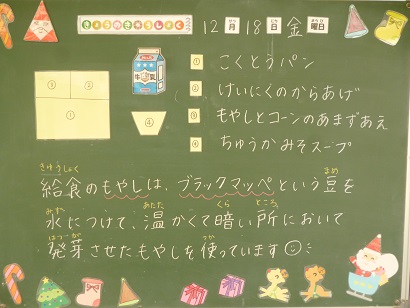 きょうのきゅうしょく
12月18日金曜日
がつ にち ようび
① こくとうパン
② けいにくのからあげ
③ もやしとコーンのあまずあえ
④ ちゅうかみそスープ
③ ②
①
牛乳
④
きゅうしょく まめ
給食のもやしは、ブラックマッペという豆を
みず あたた くら ところ
水につけて、温かくて暗い所において
はつが つか
発芽させたもやしを使っています